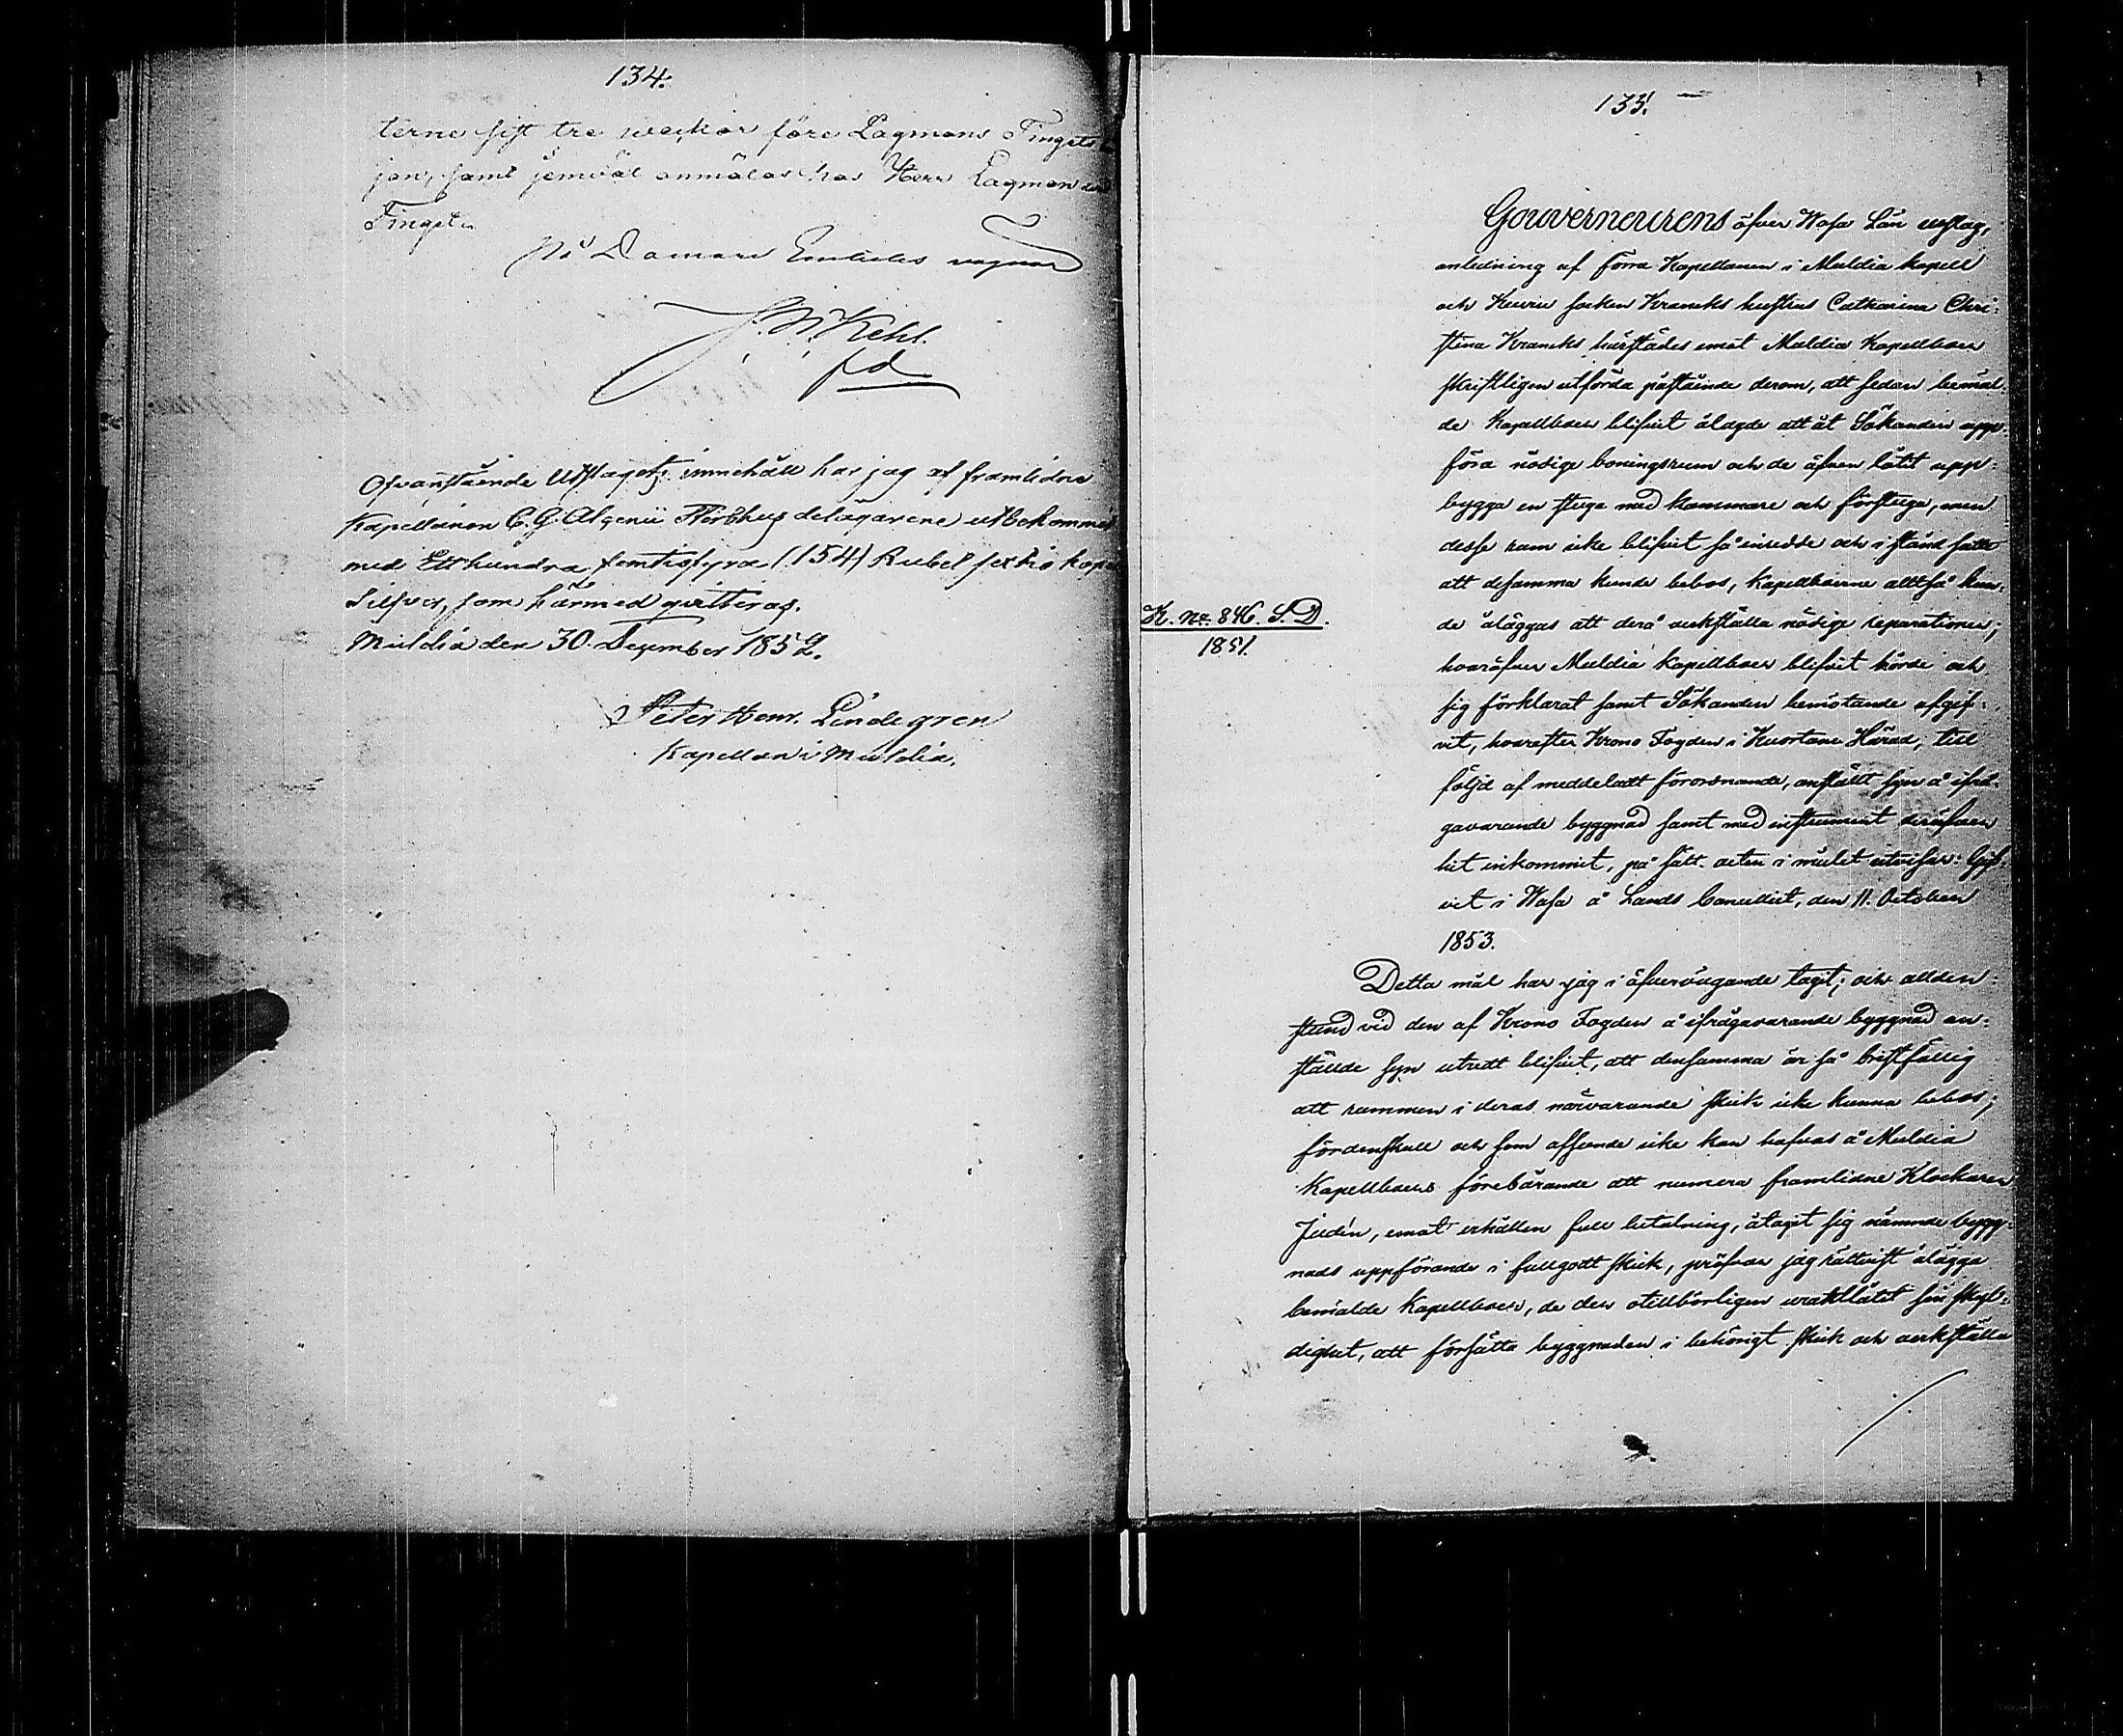 134.
terne sist tre weckor före Lagmans Tingets
jan, samt jemväl anmälas hos Herr Lagman
Tinget.
På Domare Embetes vägnar
J. W. Kehl.
Ofvanstående Utslagets innehåll har jag af framlidne
Kapellanen C. G. Algenii Sterbhus delägarene utbekommit
med Etthundra femtiofyra (154) Rubel sextio kop
Silfver, som härmed qvitteras.
Muldia den 30 December 1852.
Peter Henr. Lindegren
Kapellan i Muldia.
135.
Gouverneurens öfver Wasa Län utslag,
anledning af Förra Kapellanen i Muldia kapell
och Keuru socken Krancks hustrus Catharina Chri-
stina Krancks härstädes emot Muldia Kapellboer
skriftligen utförda påstående derom, att sedan bemäl-
de Kapellboer blifvit ålagde att åt Sökanden upp-
föra nödige boningsrum och de äfven låtit upp-
bygga en stuga med kammare och förstuga, men
desse rum icke blifvit så inredde och i stånd satte
att desamma kunde bebos, Kapellboerne alltså kun-
de åläggas att derå verkställa nödige reparationer;
hvaröfver Muldia kapellboer blifvit hörde och
sig förklarat samt Sökanden bemötande afgif-
vit, hvarefter Krono Fogden i Kuortane Härad, till
följd af meddeladt förordnande, anställt syn å ifrå-
gavarande byggnad samt med instrument deröfver
hit inkommit, på sätt acten i målet utvisar: Gif-
vet i Wasa å Lands Cancelliet, den 11. October
1853.
K. No. 846 S.D.
1851.
Detta mål har jag i öfvervägande tagit; och allden-
stund vid den af Krono Fogden å ifrågavarande byggnad an-
ställde syn utredt blifvit, att densamma är så bristfällig
att rummen i deras närvarande skick icke kunna bebos;
fördenskull och som afseende icke kan hafvas å Muldia
Kapellboers förebärande att numera framlidne Klockaren
Judén, emot erhållen full betalning, åtagit sig nämnde bygg-
nads uppförande i fullgodt skick, pröfvar jag rättvist ålägga
bemälde Kapellboer, de der otillbörligen uraktlåtit sin skyl-
dighet, att försätta byggnaden i behörigt skick och verkställa